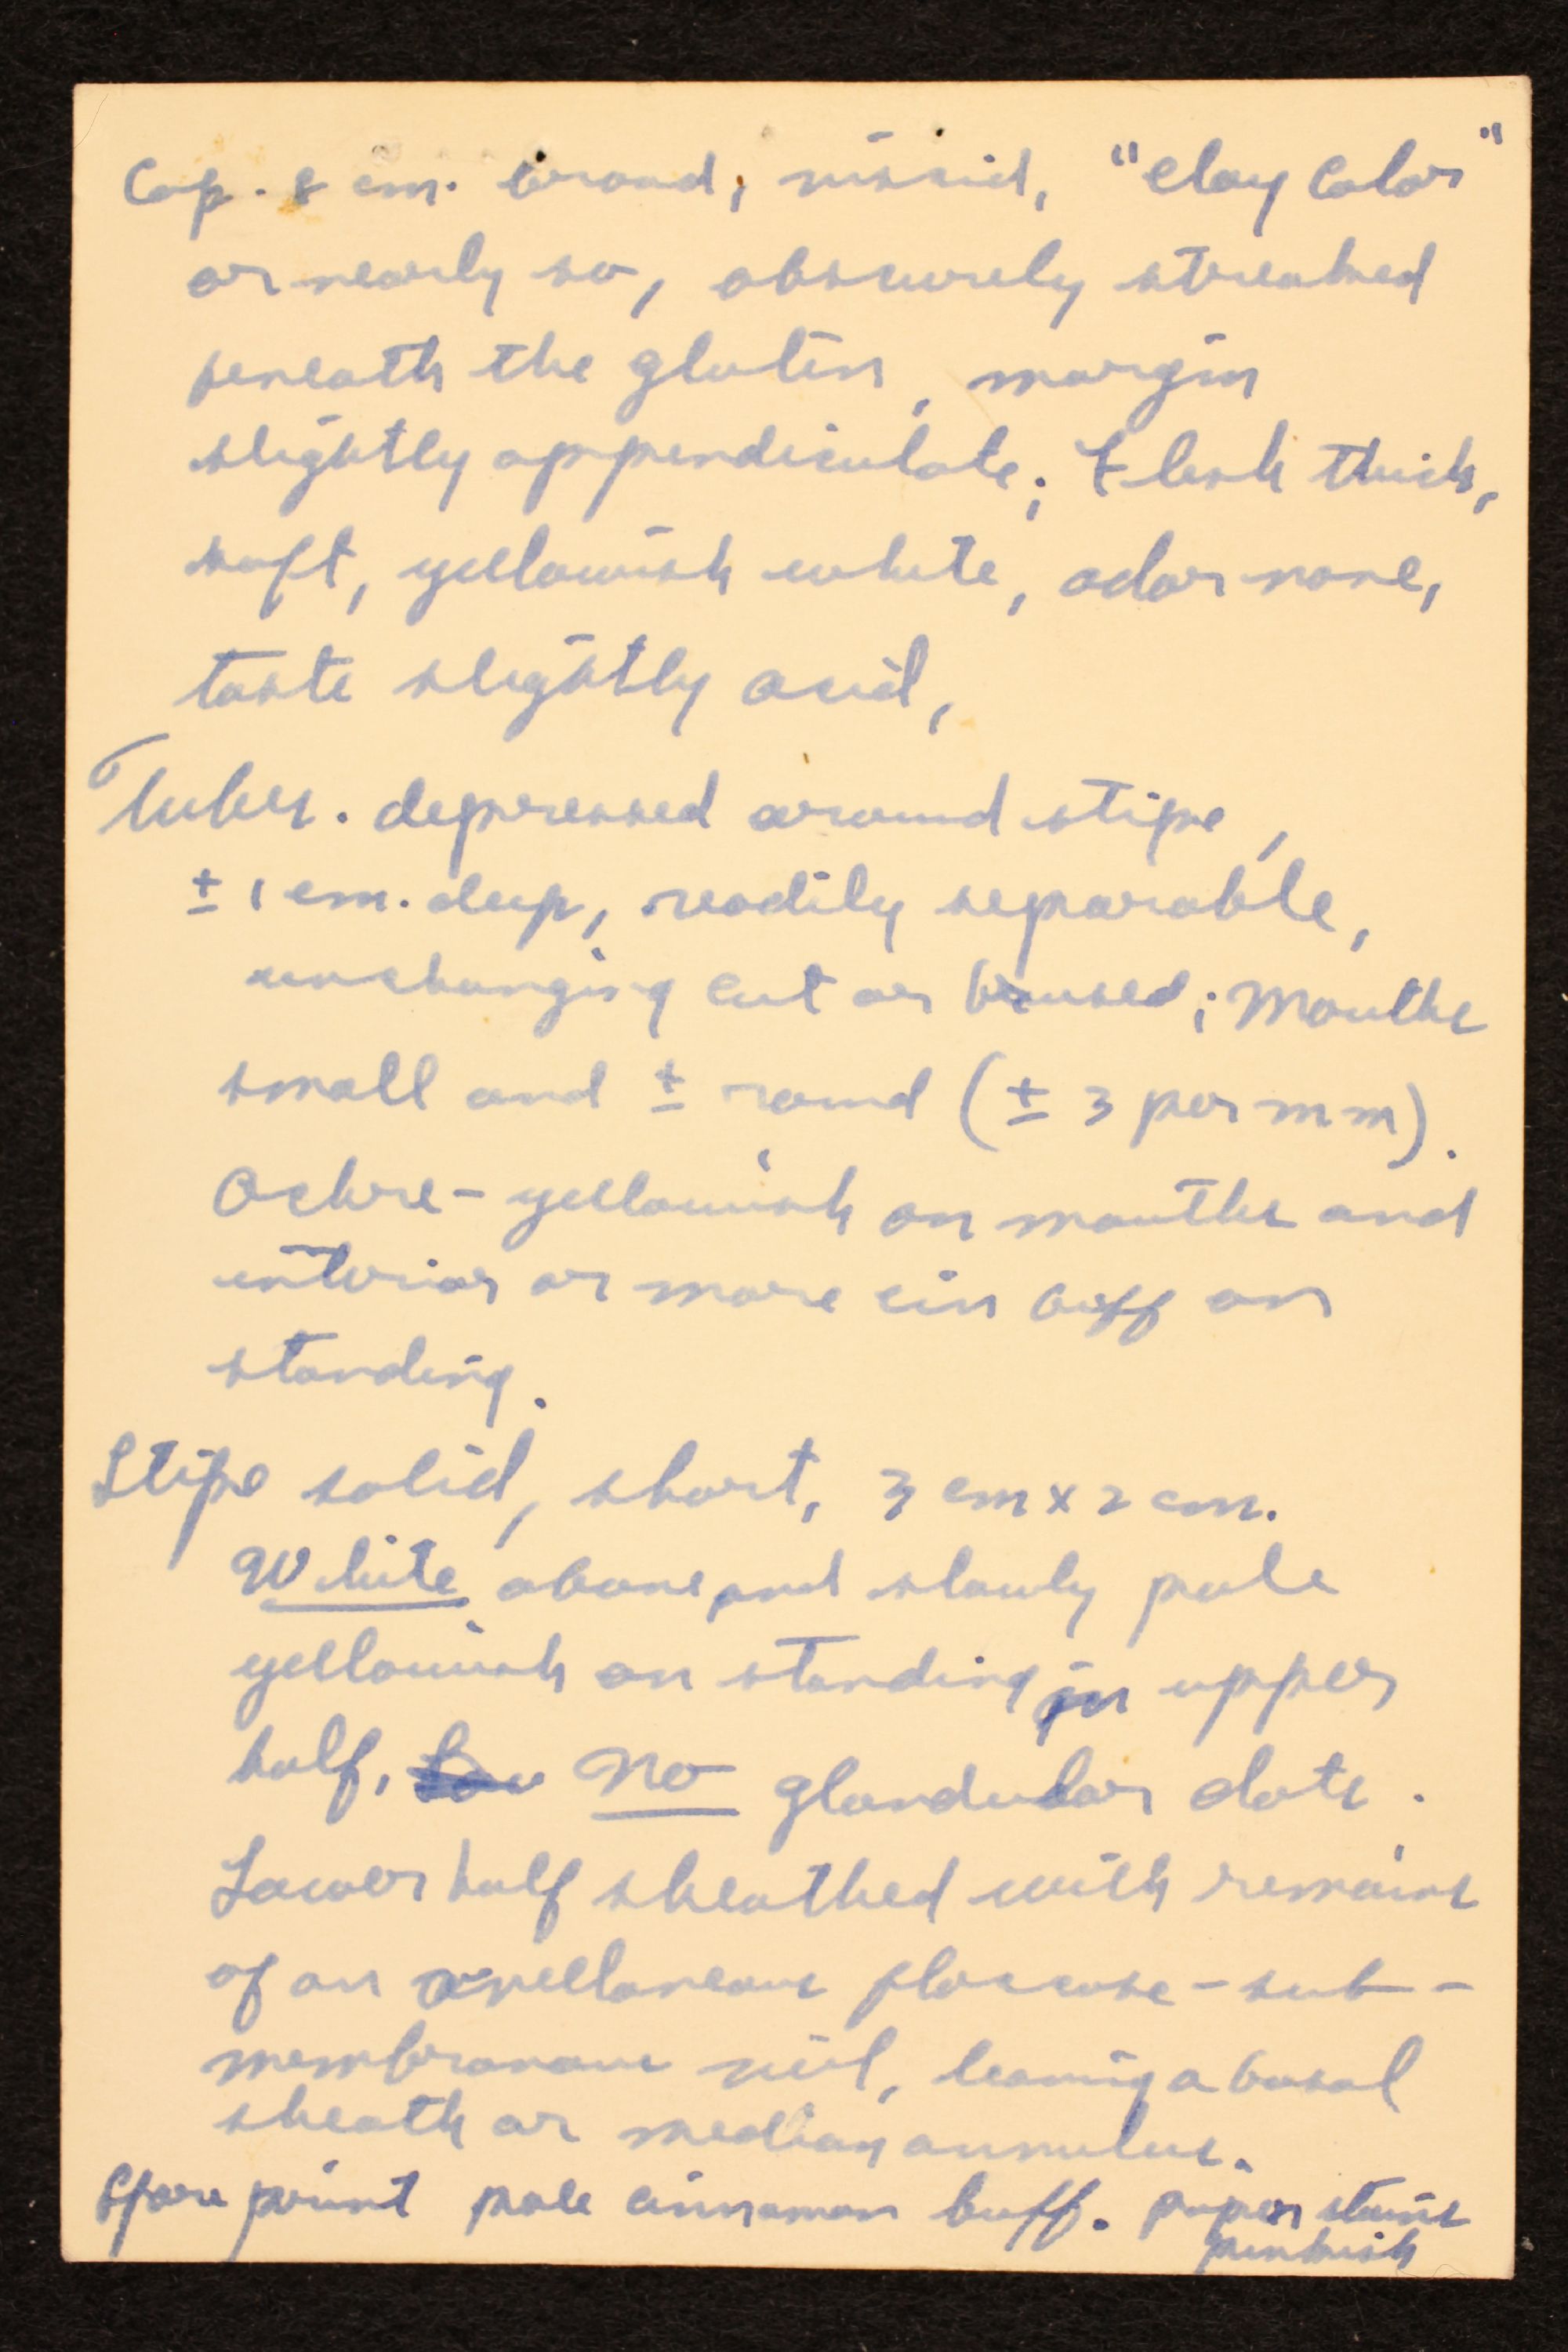 Cap. 8 cm. broad, viscid, "clay color"
or nearly so, obscurely streaked
beneath the gluten, margin
slightly appendiculate; Flesh thick,
soft, yellowish white, odor none,
taste slightly acid,
Tubes. depressed around stipe,
± 1 cm. deep, readily separable,
unchanging cut or bruised; Mouths
small and ± round (± 3 per mm).
Ochre-yellowish on mouths and
interior or more cin buff on
standing.
Stipe solid, short, 3 cm x 2 cm.
White above and slowly pale
yellowish on standing in upper
half, No glandular dots.
Lower half sheathed with remains
of an avellaneous floccose-sub-
membranous veil, leaving a basal
sheath or median annulus.
Spore print pale cinnamon buff. paper stains
pinkish